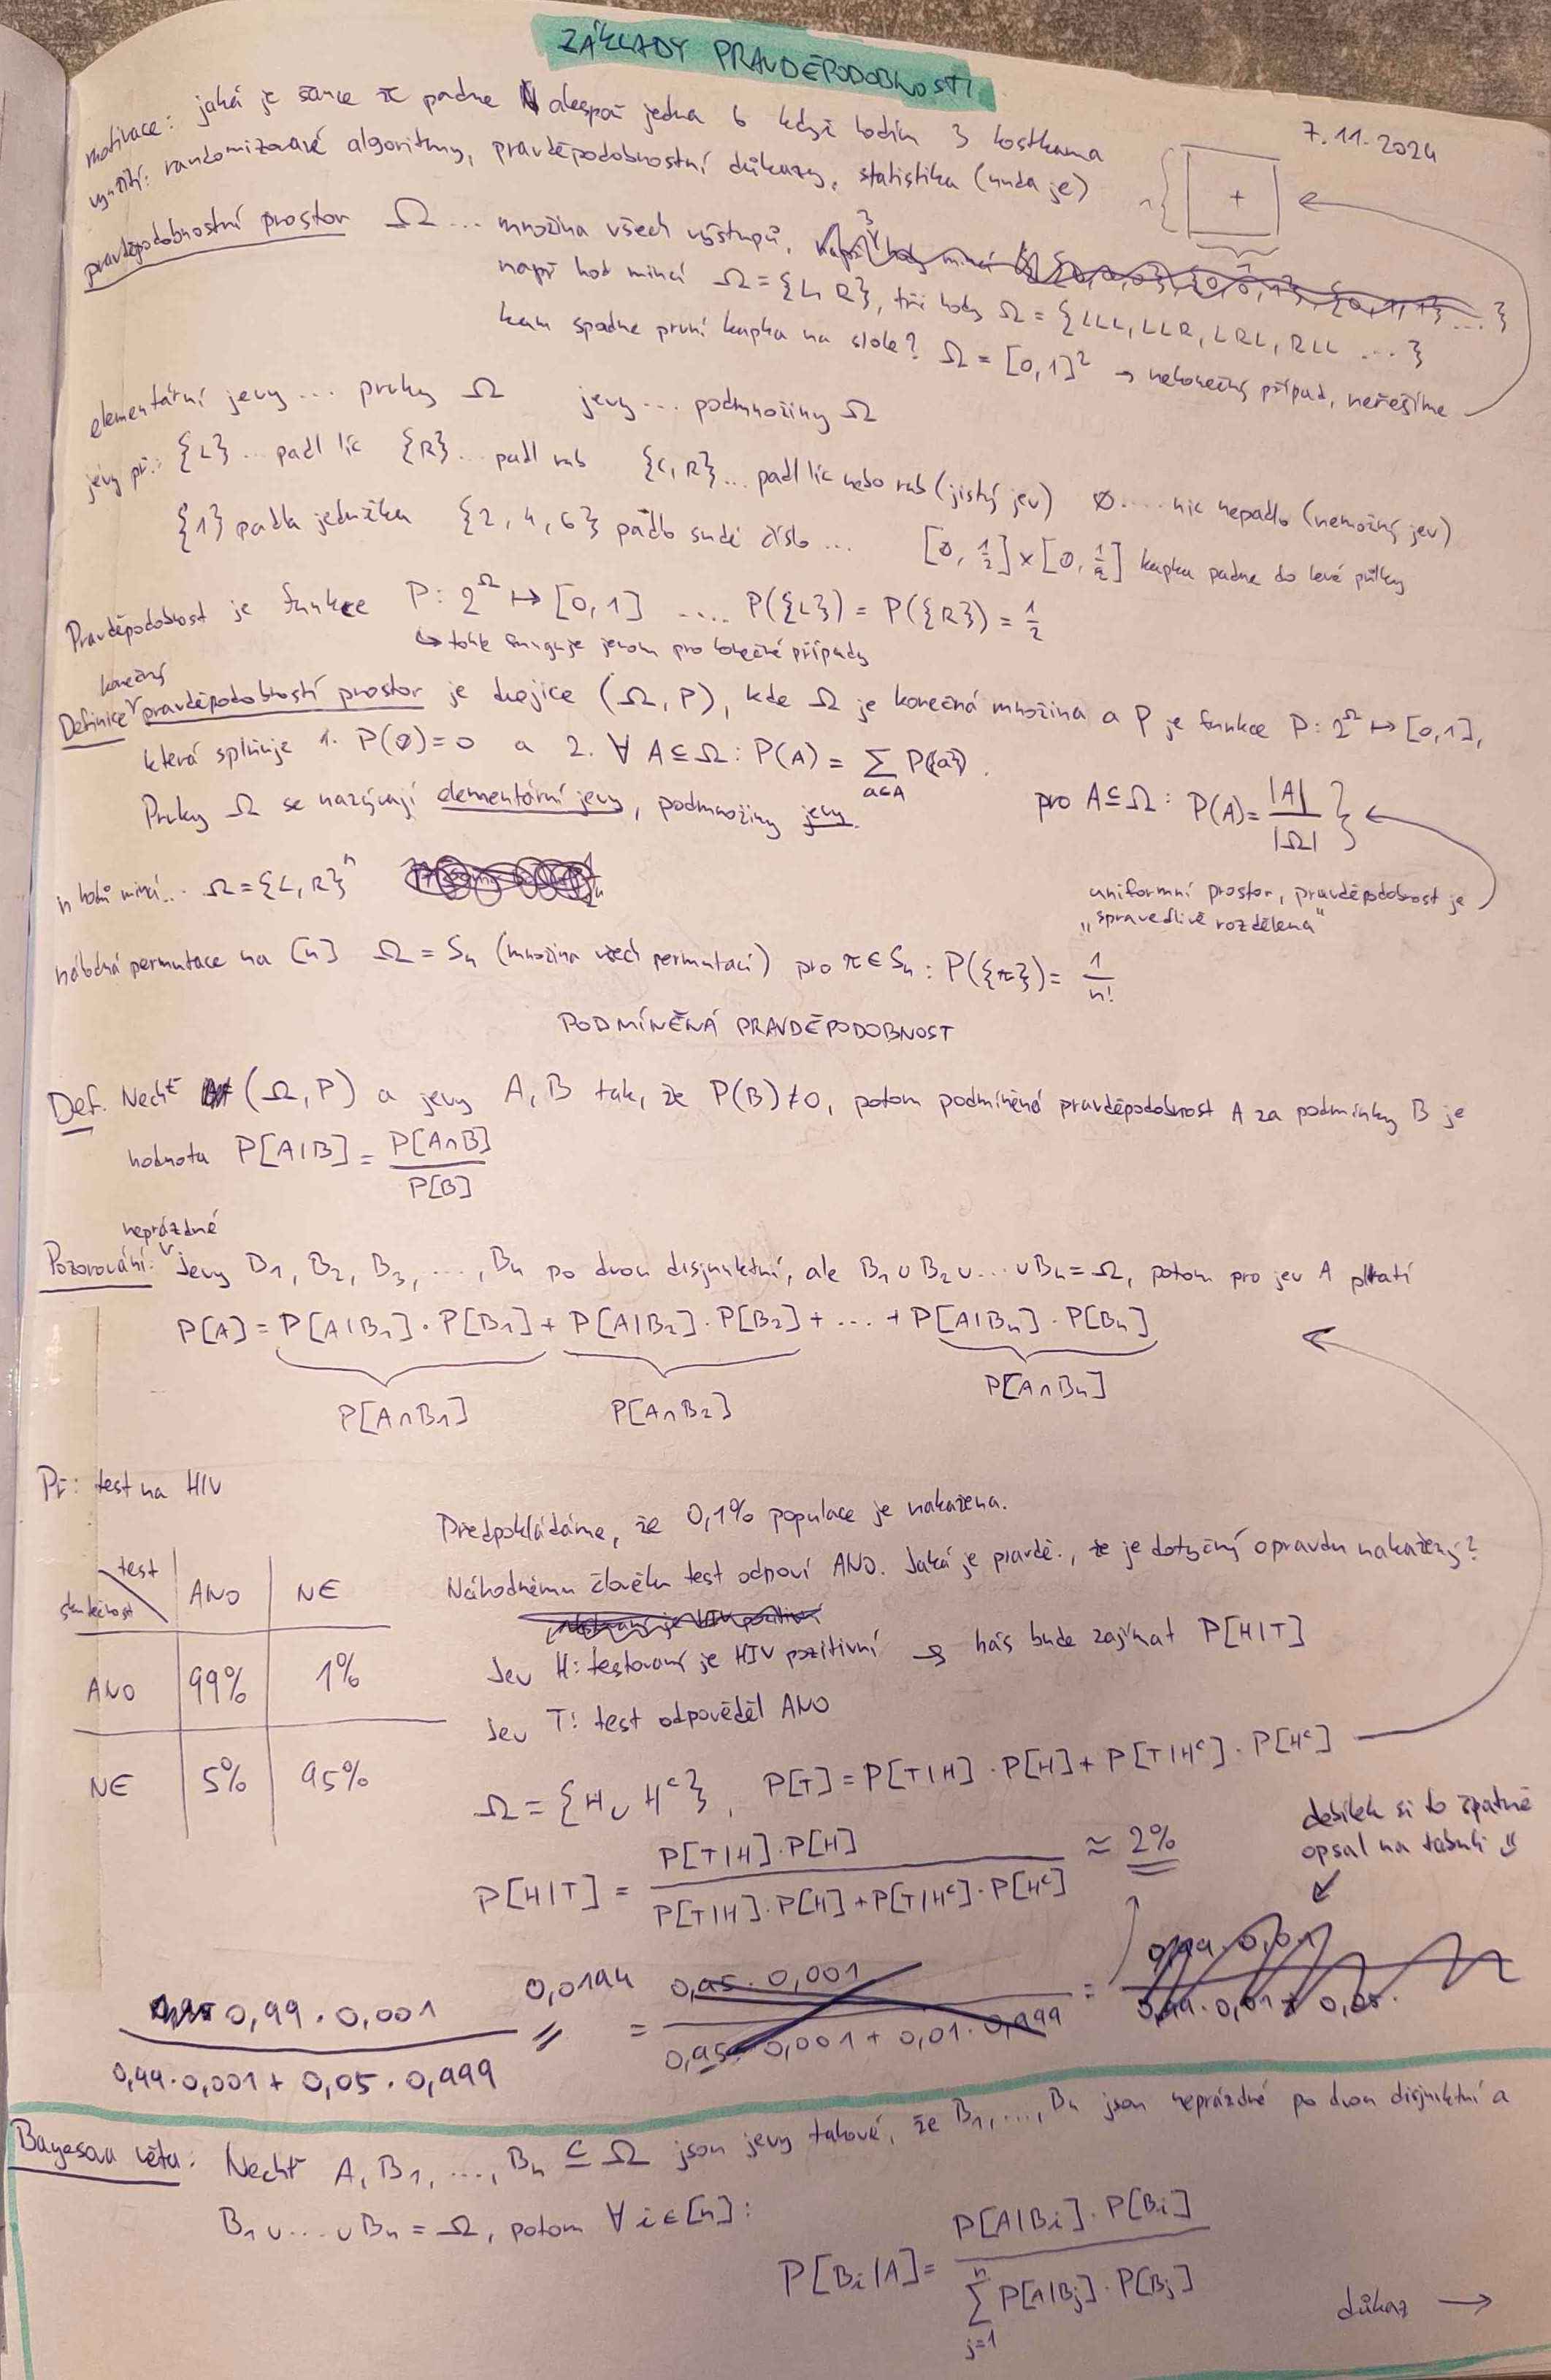 ZÁKLADY PRAVDĚPODOBNOSTI
7.11.2024
motivace: jaká je šance že padne alespoň jedna 6 když hodím 3 kostkama
využití: randomizované algoritmy, pravděpodobnostní důkazy, statistika (nuda je)
pravděpodobnostní prostor Ω ... množina všech výstupů,
např hod mincí Ω = {L, R}, tři hody Ω = {LLL, LLR, LRL, RLL ...}
kam spadne první kapka na stole? Ω = [0,1]² → nekonečný případ, neřešíme
elementární jevy ... prvky Ω jevy ... podmnožiny Ω
jevy př.: {L} ... padl líc {R} ... padl rub {L, R} ... padl líc nebo rub (jistý jev) ∅ .... nic nepadlo (nemožný jev)
{1} padla jednička {2, 4, 6} padlo sudé číslo ... [0, 1/2] × [0, 1/2] kapka padne do levé půlky
Pravděpodobnost je funkce P: 2^Ω ↦ [0,1] .... P({L}) = P({R}) = 1/2
↳ tohle funguje jenom pro konečné případy
konečný
Definice pravděpodobnostní prostor je dvojice (Ω, P), kde Ω je konečná množina a P je funkce P: 2^Ω ↦ [0,1],
která splňuje 1. P(∅) = 0 a 2. ∀ A ⊆ Ω : P(A) = Σ_{a∈A} P({a}).
Prvky Ω se nazývají elementární jevy, podmnožiny jevy.
pro A ⊆ Ω : P(A) = |A| / |Ω| }
uniformní prostor, pravděpodobnost je
„spravedlivě rozdělena"
n hodů mincí .. Ω = {L, R}^n
náhodná permutace na [n] Ω = Sn (množina všech permutací) pro π ∈ Sn : P({π}) = 1/n!
PODMÍNĚNÁ PRAVDĚPODOBNOST
Def. Nechť (Ω, P) a jevy A, B tak, že P(B) ≠ 0, potom podmíněná pravděpodobnost A za podmínky B je
hodnota P[A|B] = P[A∩B] / P[B]
neprázdné
Pozorování: Jevy B1, B2, B3, ..., Bn po dvou disjunktní, ale B1 ∪ B2 ∪ ... ∪ Bn = Ω, potom pro jev A platí
P[A] = P[A|B1] · P[B1] + P[A|B2] · P[B2] + ... + P[A|Bn] · P[Bn]
P[A∩B1] P[A∩B2] P[A∩Bn]
Př: test na HIV
Předpokládáme, že 0,1% populace je nakažena.
Náhodnému člověku test odpoví ANO. Jaká je pravdě., že je dotyčný opravdu nakažený?
test
skutečnost
ANO NE
ANO 99% 1%
NE 5% 95%
Jev H: testovaný je HIV pozitivní → nás bude zajímat P[H|T]
Jev T: test odpověděl ANO
Ω = {H ∪ H^c}, P[T] = P[T|H] · P[H] + P[T|H^c] · P[H^c]
P[H|T] = P[T|H] · P[H] / P[T|H] · P[H] + P[T|H^c] · P[H^c] ≈ 2%
debílek si to špatně
opsal na tabuli
0,99 · 0,001 / 0,99 · 0,001 + 0,05 · 0,999 = 0,0194 = 0,95 · 0,001 / 0,95 · 0,001 + 0,01 · 0,999 =
Bayesova věta: Nechť A, B1, ..., Bn ⊆ Ω jsou jevy takové, že B1, ..., Bn jsou neprázdné po dvou disjunktní a
B1 ∪ ... ∪ Bn = Ω, potom ∀ i ∈ [n] :
P[Bi|A] = P[A|Bi] · P[Bi] / Σ_{j=1}^{n} P[A|Bj] · P[Bj]
důkaz →